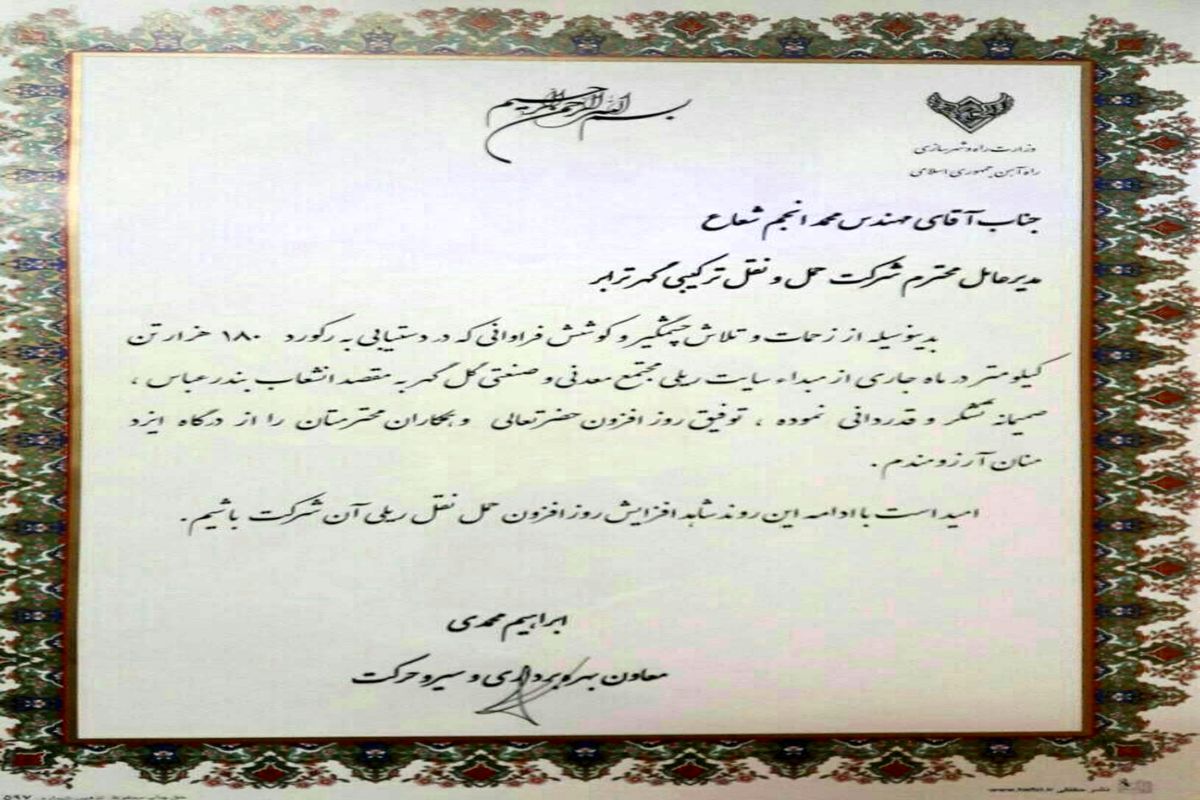 بسم الله الرحمن الرحیم
وزارت راه و شهرسازی
راه آهن جمهوری اسلامی
جناب آقای مهندس محمد انجم شعاع
مدیرعامل محترم شرکت حمل و نقل ترکیبی گهر ترابر
بدینوسیله از زحمات و تلاش چشمگیر و کوشش فراوانی که در دستیابی به رکورد ۱۸۰ هزار تن
کیلومتر در ماه جاری از مبداء سایت ریلی مجتمع معدنی و صنعتی گل گهر به مقصد انشعاب بندرعباس ،
صمیمانه تشکر و قدردانی نموده ، توفیق روز افزون حضرتعالی و همکاران محترمتان را از درگاه ایزد
منان آرزومندم .
امید است با ادامه این روند شاهد افزایش روز افزون حمل نقل ریلی آن شرکت باشیم .
ابراهیم محمدی
معاون بهره برداری و سیر و حرکت